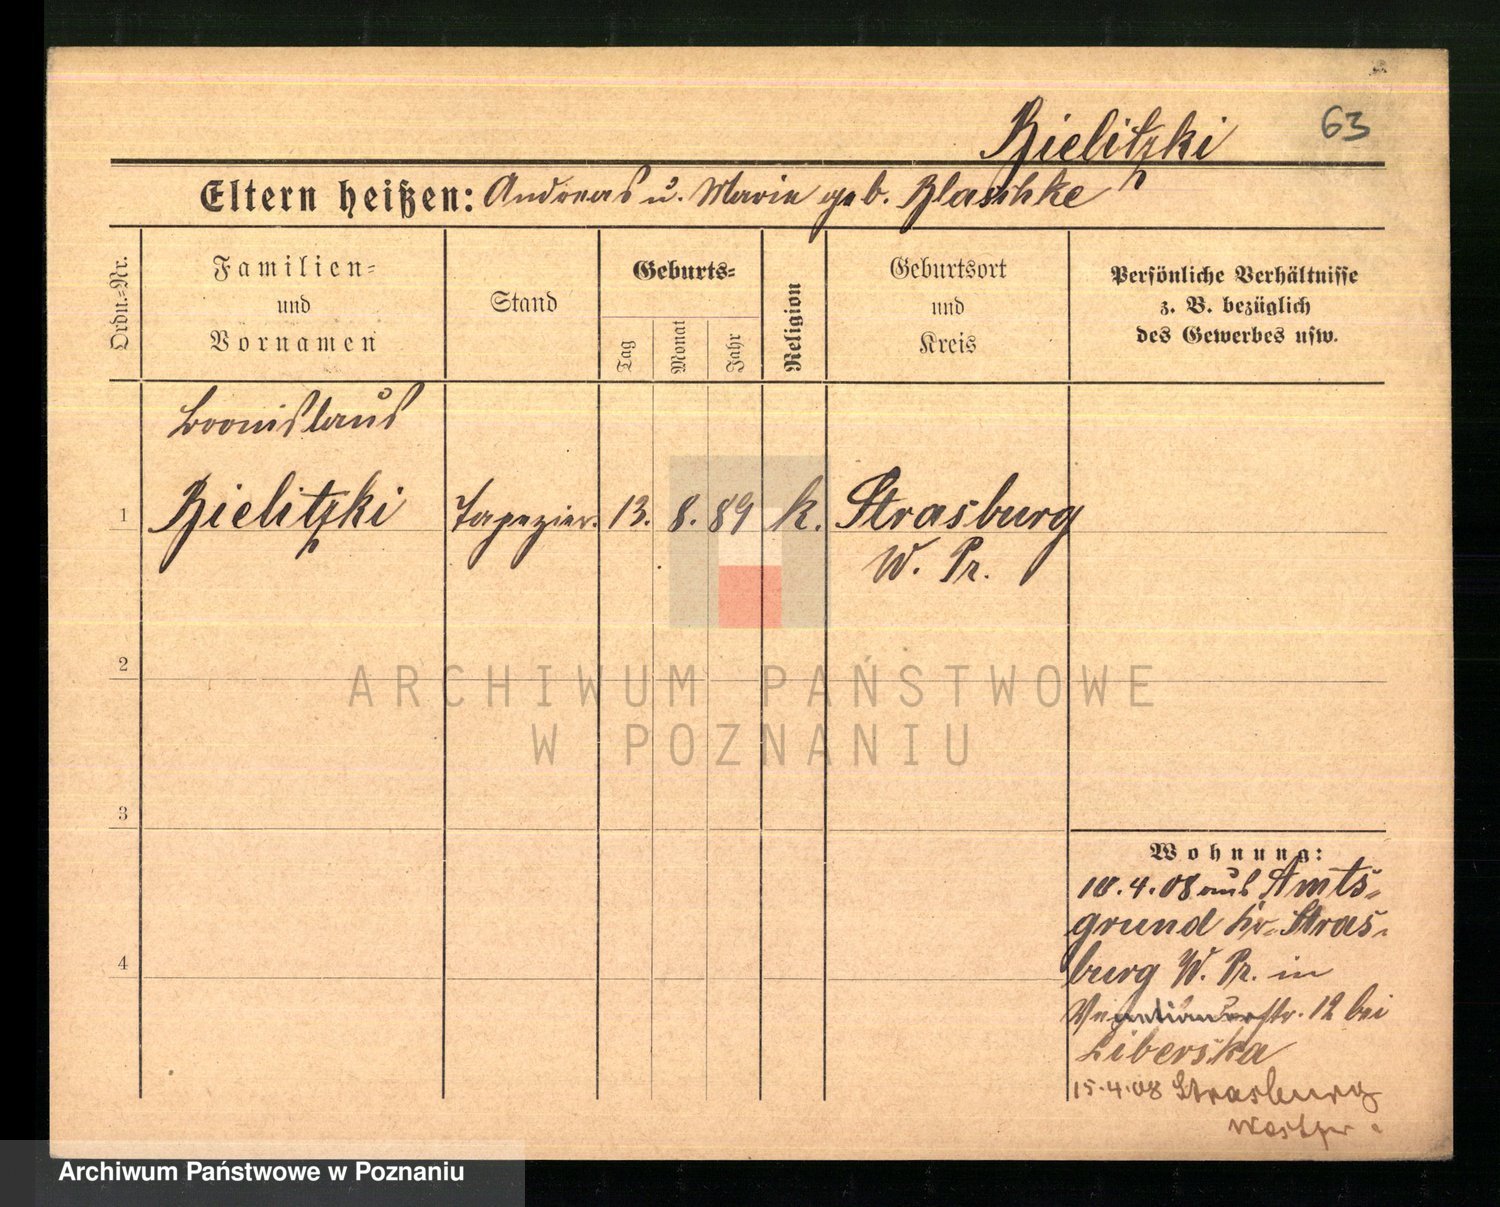 63
Bielitzki
Eltern heißen: Andreas u. Marie geb. Blaschke
Ordn.-Nr.
Familien-
und
Vornamen
Stand
Geburts-
Tag
Monat
Jahr
Religion
Geburtsort
und
Kreis
Persönliche Verhältnisse
z. B. bezüglich
des Gewerbes usw.
Bronislaus
1 Bielitzki Tapezier. 13. 8. 89 k. Strasburg
W. Pr.
2
ARCHIWUM PAŃSTWOWE
W POZNANIU
3
Wohnung:
10.4.08 aus Amts-
grund Kr. Stras-
4
burg W. Pr. in
Venetianerstr. 12 bei
Liberska
15.4.08 Strasburg
Westpr.
Archiwum Państwowe w Poznaniu